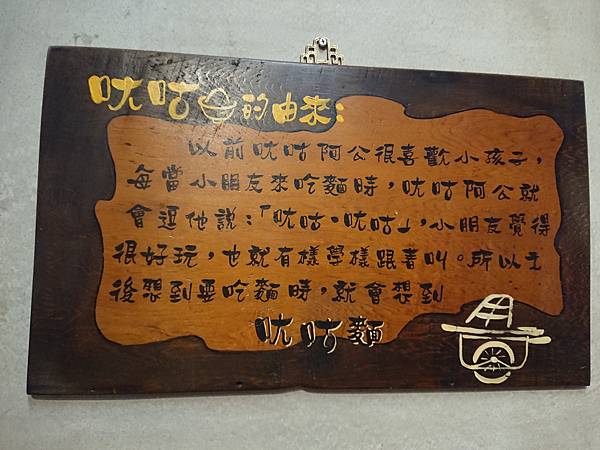 吰咕的由來：
以前吰咕阿公很喜歡小孩子，
每當小朋友來吃麵時，吰咕阿公就
會逗他說：「吰咕‧吰咕」，小朋友覺得
很好玩，也就有樣學樣跟著叫。所以之
後想到要吃麵時，就會想到
吰咕麵